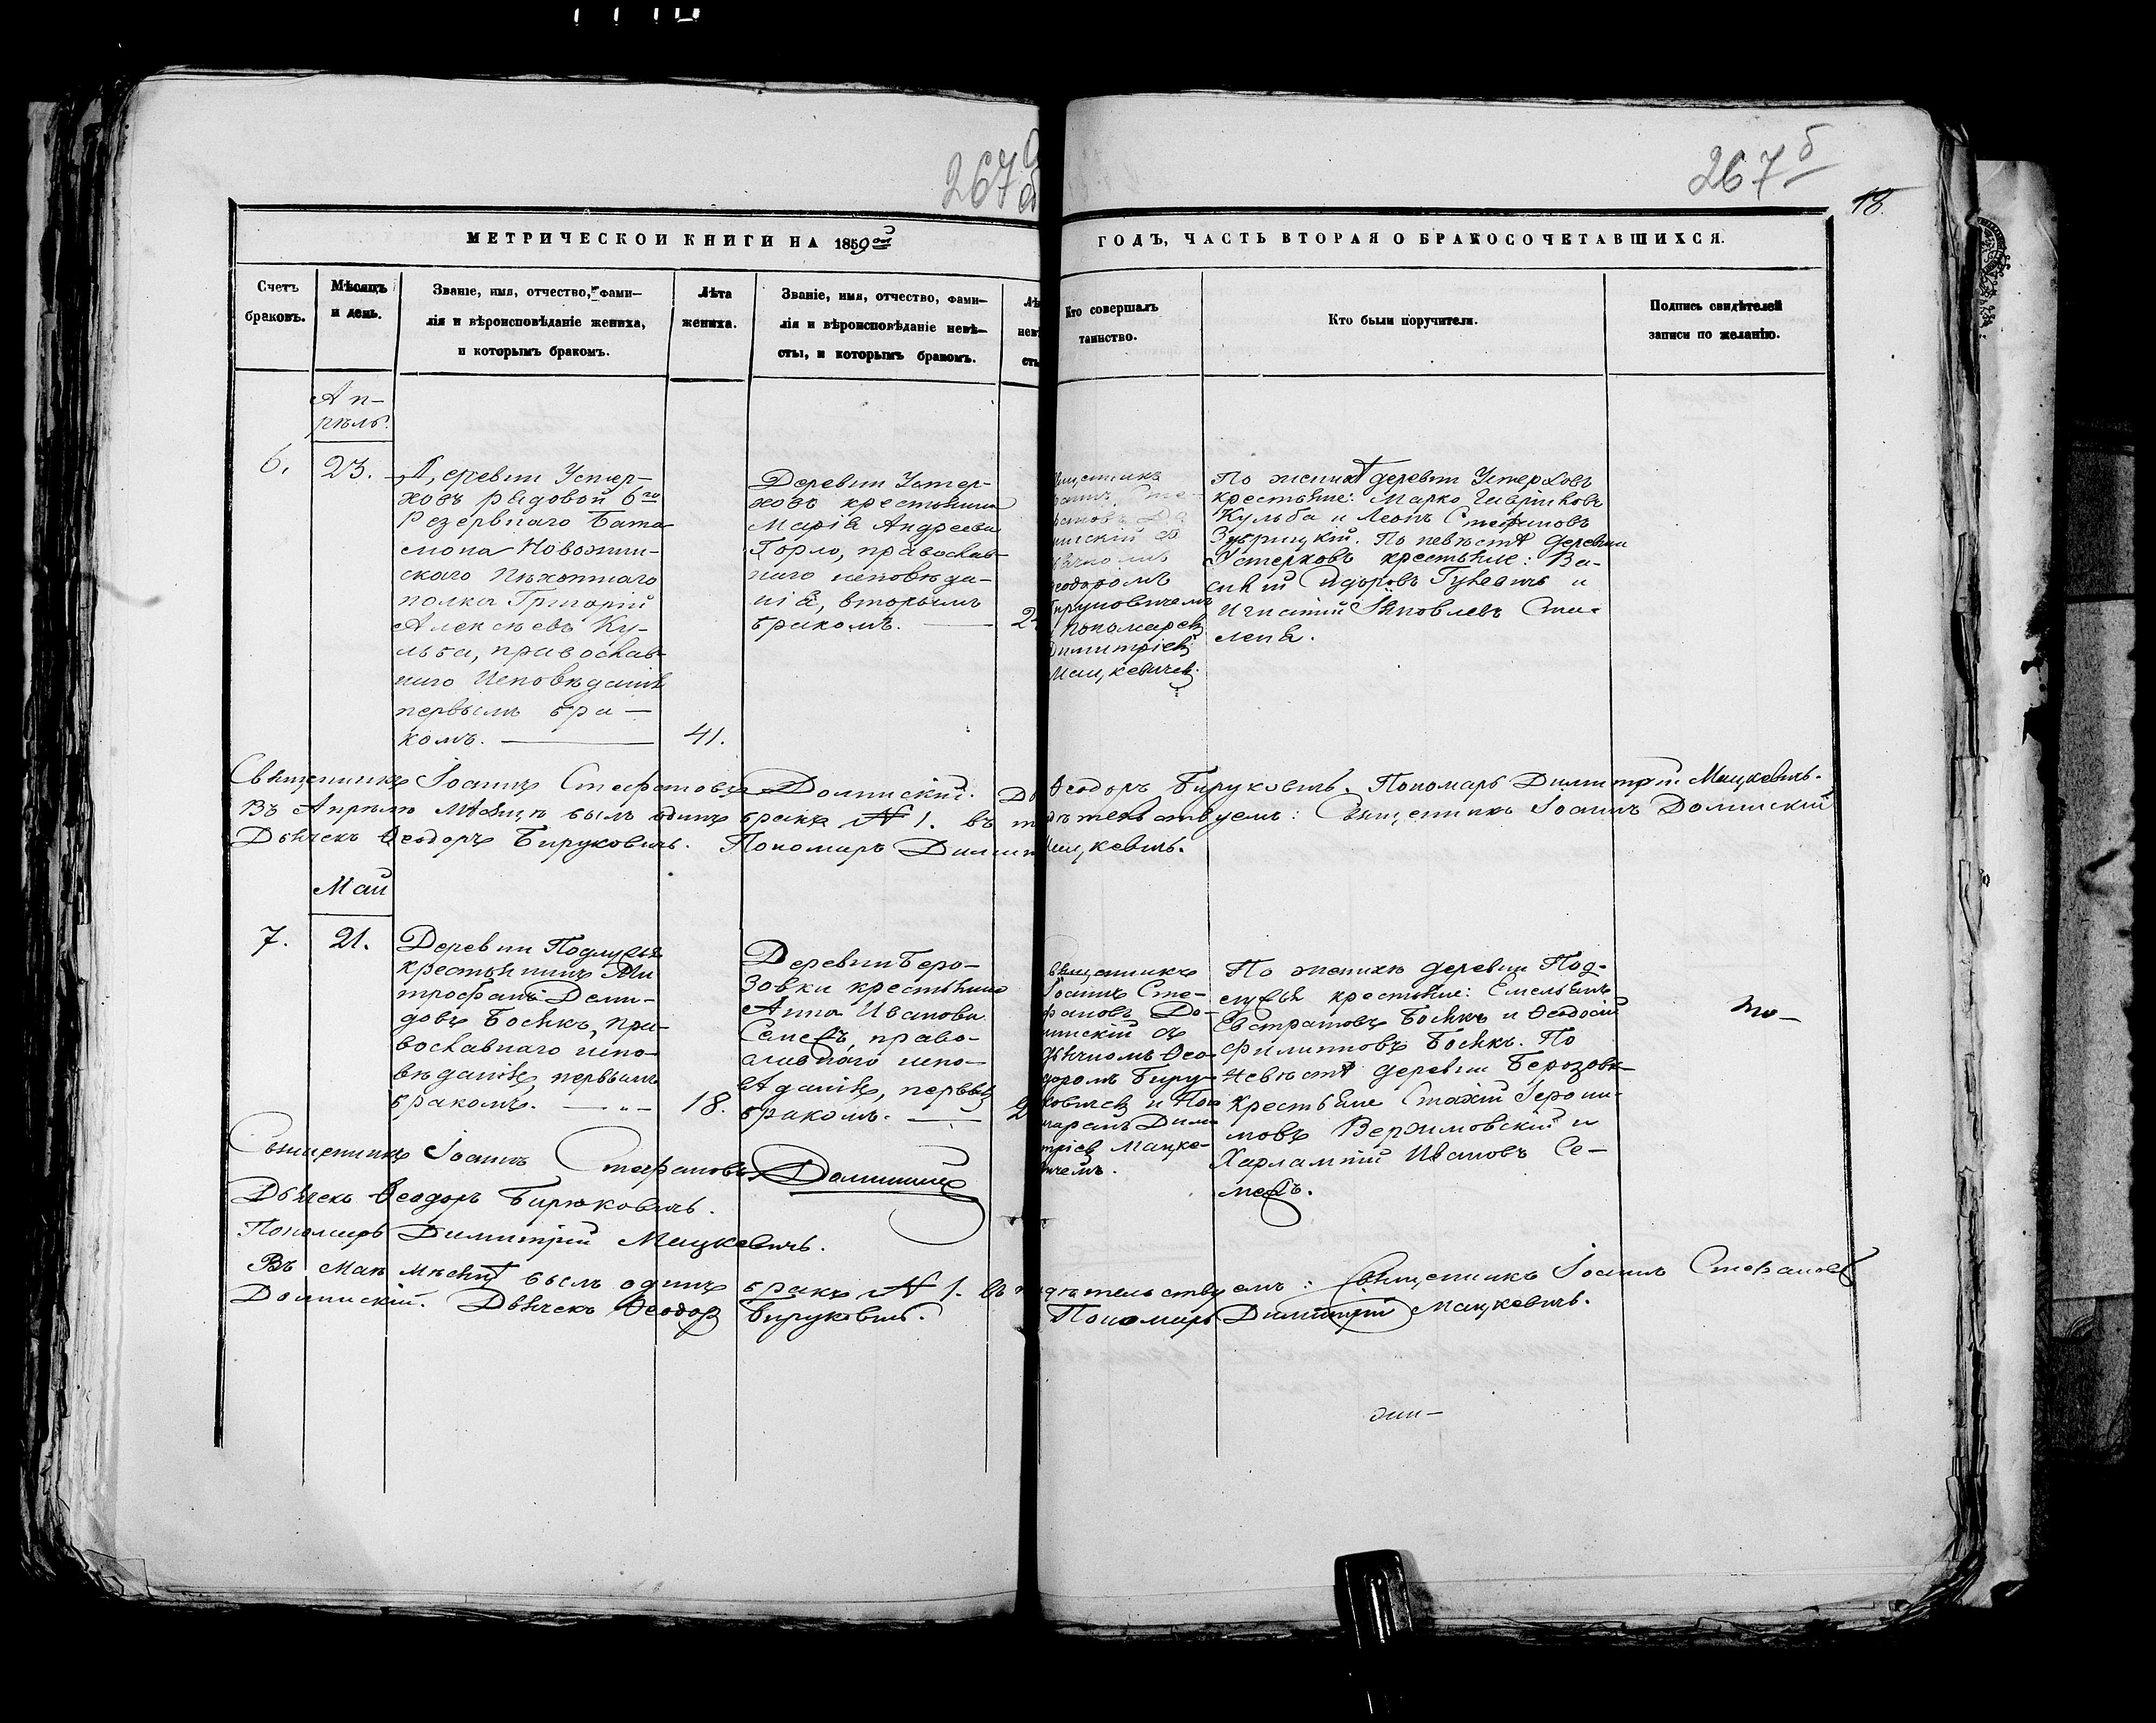 267
об
267 б
18.
МЕТРИЧЕСКОЙ КНИГИ НА 1859ой
ГОДЪ, ЧАСТЬ ВТОРАЯ О БРАКОСОЧЕТАВШИХСЯ.
Счетъ
браковъ.
Мѣсяцъ
и день.
Званіе, имя, отчество, фами—
лія и вѣроисповѣданіе жениха,
и которымъ бракомъ.
Лѣта
жениха.
Званіе, имя, отчество, фами—
лія и вѣроисповѣданіе невѣ—
сты, и которымъ бракомъ.
Лѣ
нев
ст
Кто совершалъ
таинство.
Кто были поручители.
Подпись свидѣтелей
записи по желанію.
Ап—
рѣль.
6.
23.
Деревни Устер-
ховъ рядовой 6го
Резервнаго Бата
ліона Новожин-
скаго Пѣхотнаго
полка Григорій
Алексѣевъ Ку-
льба, православ-
наго исповѣданія
первымъ бра—
комъ.
41.
Деревни Устер-
ховъ крестьянка
Марія Андреева
Горло, православ-
наго исповѣда-
нія, вторымъ
бракомъ.
2
Стефановъ
До
мискій съ
дьячкомъ
Ѳеодоромъ
Бируковичемъ
и Пономаремъ
Димитріемъ
Мацкевичемъ.
По женихѣ деревни Устерховъ
крестьяне: Марко Гавриловъ
Кульба и Леонъ Стефановъ
Зубрицкій. По невѣстѣ деревни
Устерховъ крестьяне: Ва-
силій Сидоровъ и
Игнатій Яковлевъ
Священникъ Іоаннъ Стефановъ Долинскій. Дь
Ѳеодоръ Бируковичъ. Пономарь Димитрій Мацкевичъ.
Въ Апрѣлѣ мѣсяцѣ былъ одинъ бракъ № 1. въ
дѣтельствуемъ: Священникъ Іоаннъ Долинскій
Дьячекъ Ѳеодоръ Бируковичъ. Пономарь Димит
Мацкевичъ.
Май
7.
21.
Деревни Подлужья
крестьянинъ Ми
трофанъ Деми-
довъ Боякъ, пра-
вославнаго испо-
вѣданія, первымъ
бракомъ.
18.
Деревни Беро-
зовки крестьянка
Анна Иванова
право-
славнаго испо-
вѣданія, первымъ
бракомъ.
2
Священникъ
Іоаннъ Сте-
фановъ До-
линскій съ
дьячкомъ Ѳео-
доромъ Биру-
ковичемъ и Поно
маремъ Дими-
тріемъ Мацке-
вичемъ.
По женихѣ деревни Под-
лужья крестьяне: Емельянъ
Евстратовъ Боякъ и Ѳеодосій
Филиповъ Боякъ. По
невѣстѣ деревни Берозовк—
крестьяне Стахій Іерони-
мовъ Вержимовскій и
Харлампій Ивановъ Се—
Священникъ Іоаннъ Стефановъ Долинскій
Дьячекъ Ѳеодоръ Бирюковичъ.
Пономарь Димитрій Мацкевичъ.
Въ Маѣ мѣсяцѣ былъ одинъ бракъ № 1. въ
дѣтельствуемъ: Священникъ Іоаннъ Стефановъ
Долинскій. Дьячекъ Ѳеодоръ Бируковичъ.
Пономарь Димитрій Мацкевичъ.